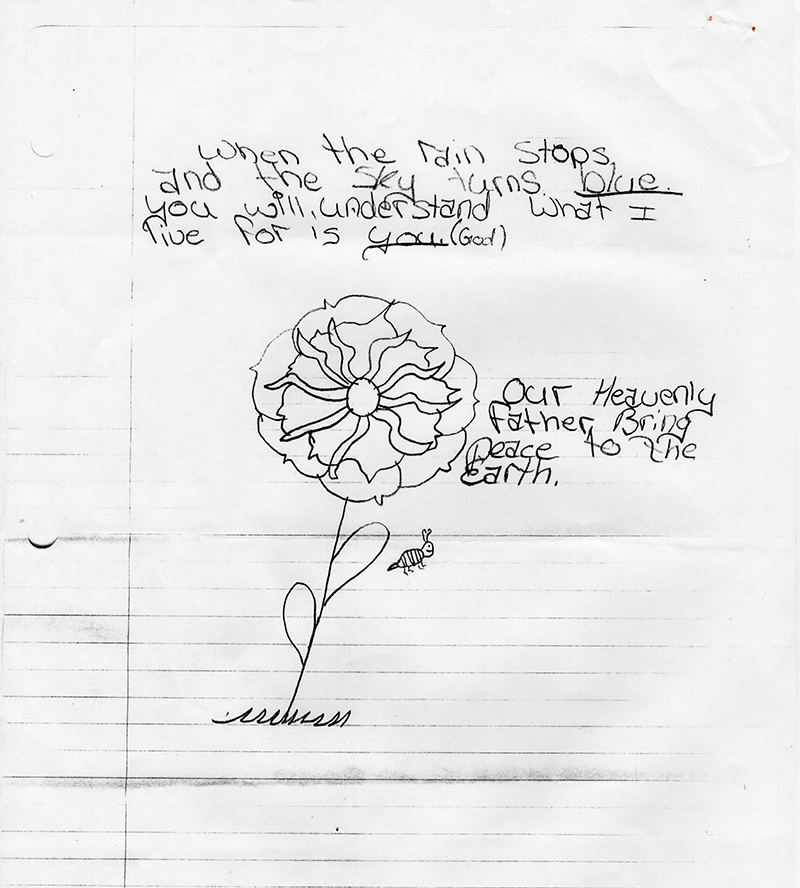 when the rain stops,
and the sky turns blue.
you will, understand what I
live for is you. (God)
Our Heavenly
Father Bring
peace to the
Earth.